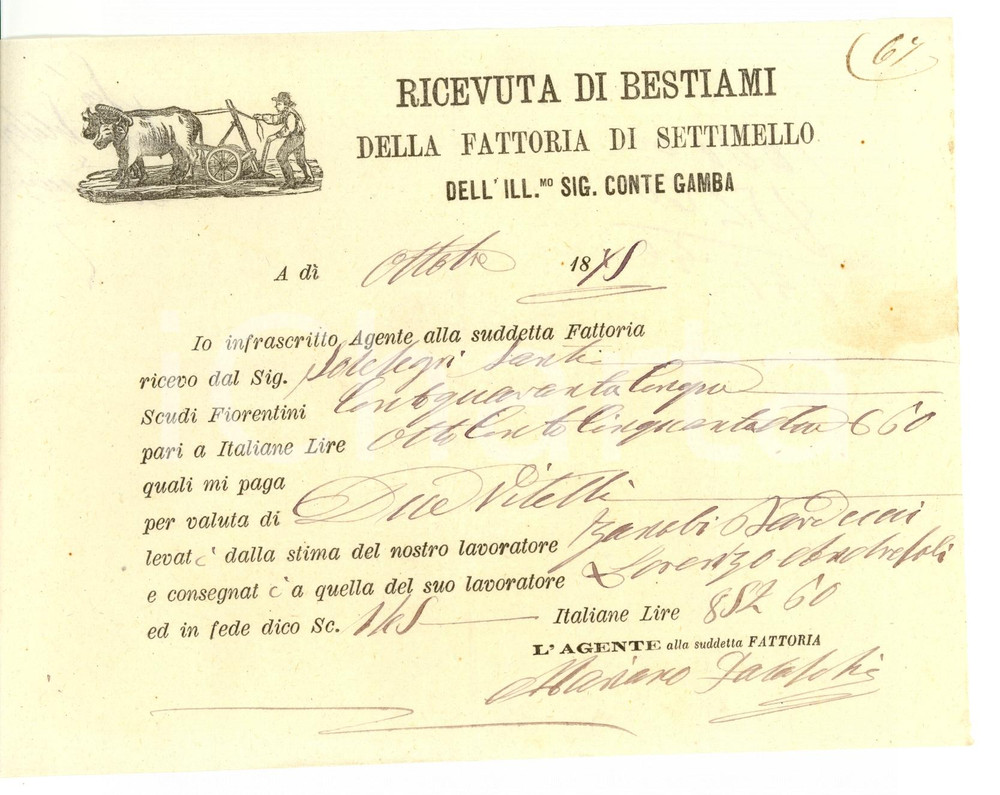 67
RICEVUTA DI BESTIAMI
DELLA FATTORIA DI SETTIMELLO
DELL' ILL.MO SIG. CONTE GAMBA
A dì Ottobre 18
Io infrascritto Agente alla suddetta Fattoria
ricevo dal Sig. Santi
Scudi Fiorentini Centoquaranta Cinque
pari a Italiane Lire Otto Cento Cinquantadue 60
quali mi paga
per valuta di Due Vitelli
levat i dalla stima del nostro lavoratore Zanobi Narducci
e consegnat i a quella del suo lavoratore Lorenzo
ed in fede dico Sc. 145 Italiane Lire 852 60
L'AGENTE alla suddetta FATTORIA
Mariano